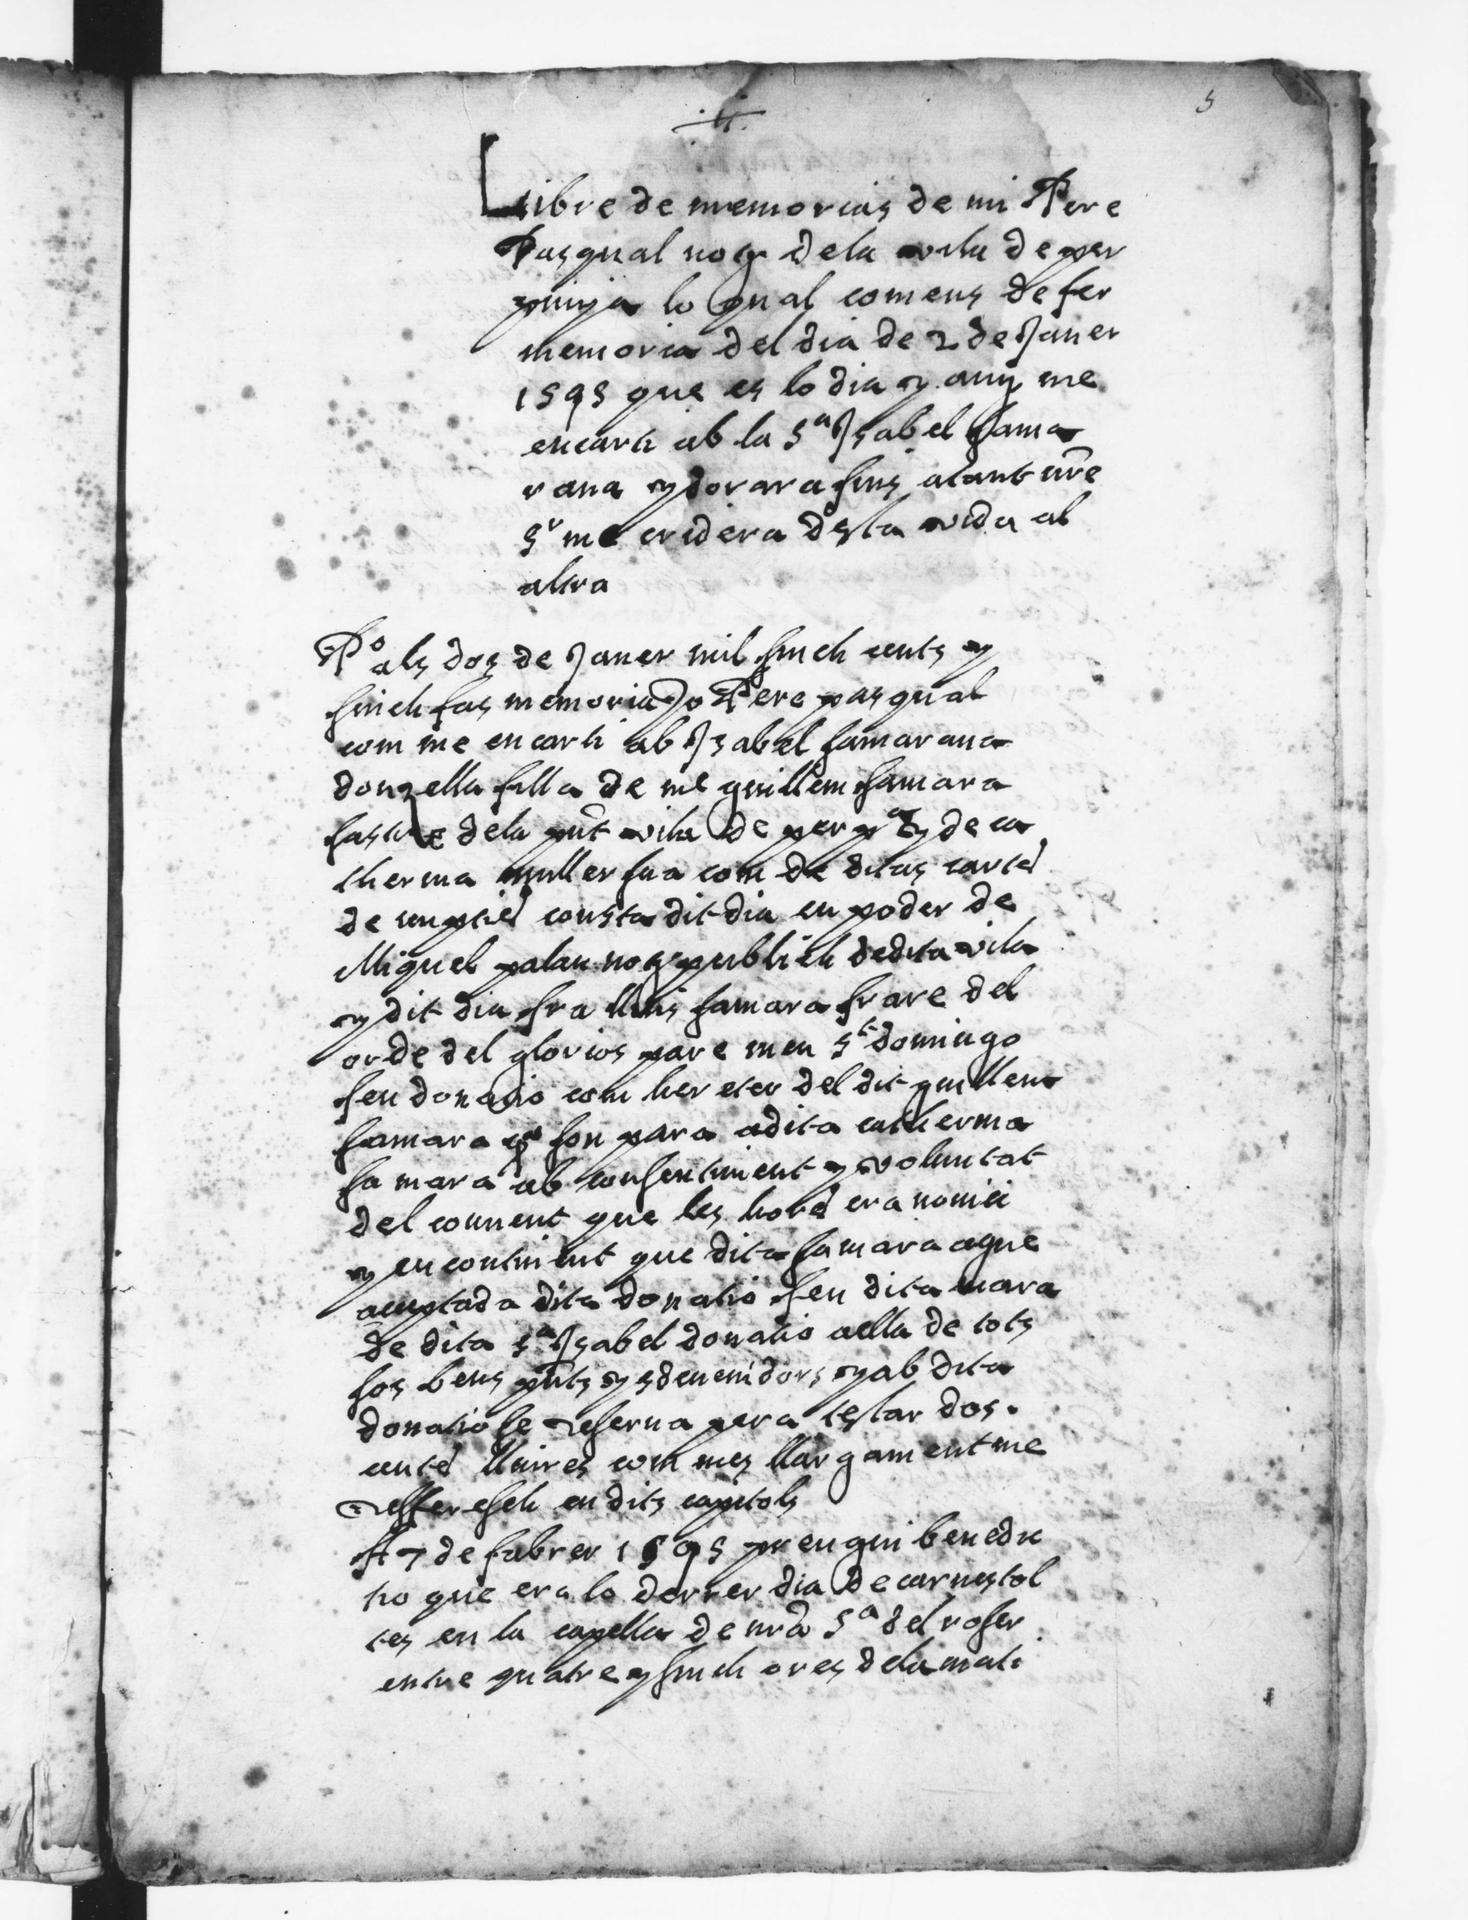 5
Llibre de memorias de mi Pere
Pasqual noy dela vila de per
pinya lo qual comens de fer
memoria del dia de 2 de Janer
1595 que es lo dia y any me
encarti ab la Sª Isabel Sama
rana y dorara fins atant nre
Sr me cridera desta vida al
altra
Pº als dos de Janer mil sinch cents y
sinch fas memoria Jo Pere pasqual
com me encarti ab Isabel samarana
donzella filla de me guillem samara
sastre dela pnt vila de perpª y de ca
therina muller sua com de ditas cartes
de nupties consta dit dia en poder de
Miquel palau noy publich de dita vila
y dit dia fra lluis samara frare del
orde del glorios pare meu St domingo
feu donatio com hereter del dit guillem
samara qº son para a dita catherina
sa mara ab consentiment y voluntat
del convent que les hores era novici
y encontinent que dita sa mara ague
acceptada dita donatio feu dita mara
de dita Sª Isabel donatio a ella de tots
sos bens pnts y sdevenidors y ab dita
donatio se reserva pera testar dos.
centes lliures com mes llargament me
reffereseh en dits capitols
A 7 de fabrer 1595 prengui benedic
tio que era lo derrer dia de carnestol
tes en la capella de nra Sª del roser
entre quatre y sinch ores dela mati